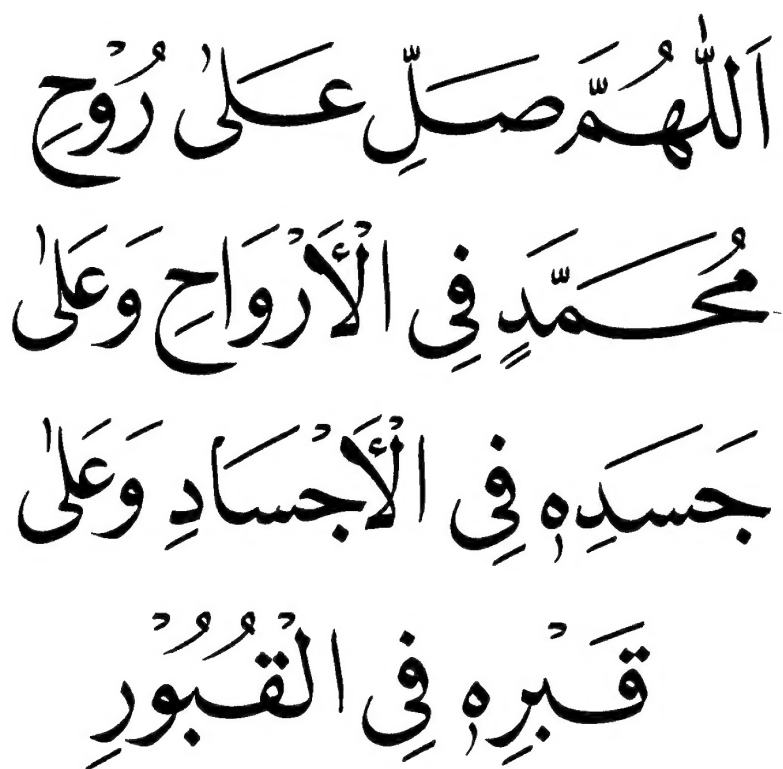 اَللّٰهُمَّ صَلِّ عَلٰى رُوْحِ
مُحَمَّدٍ فِى الْأَرْوَاحِ وَعَلٰى
جَسَدِهٖ فِى الْأَجْسَادِ وَعَلٰى
قَبْرِهٖ فِى الْقُبُوْرِ